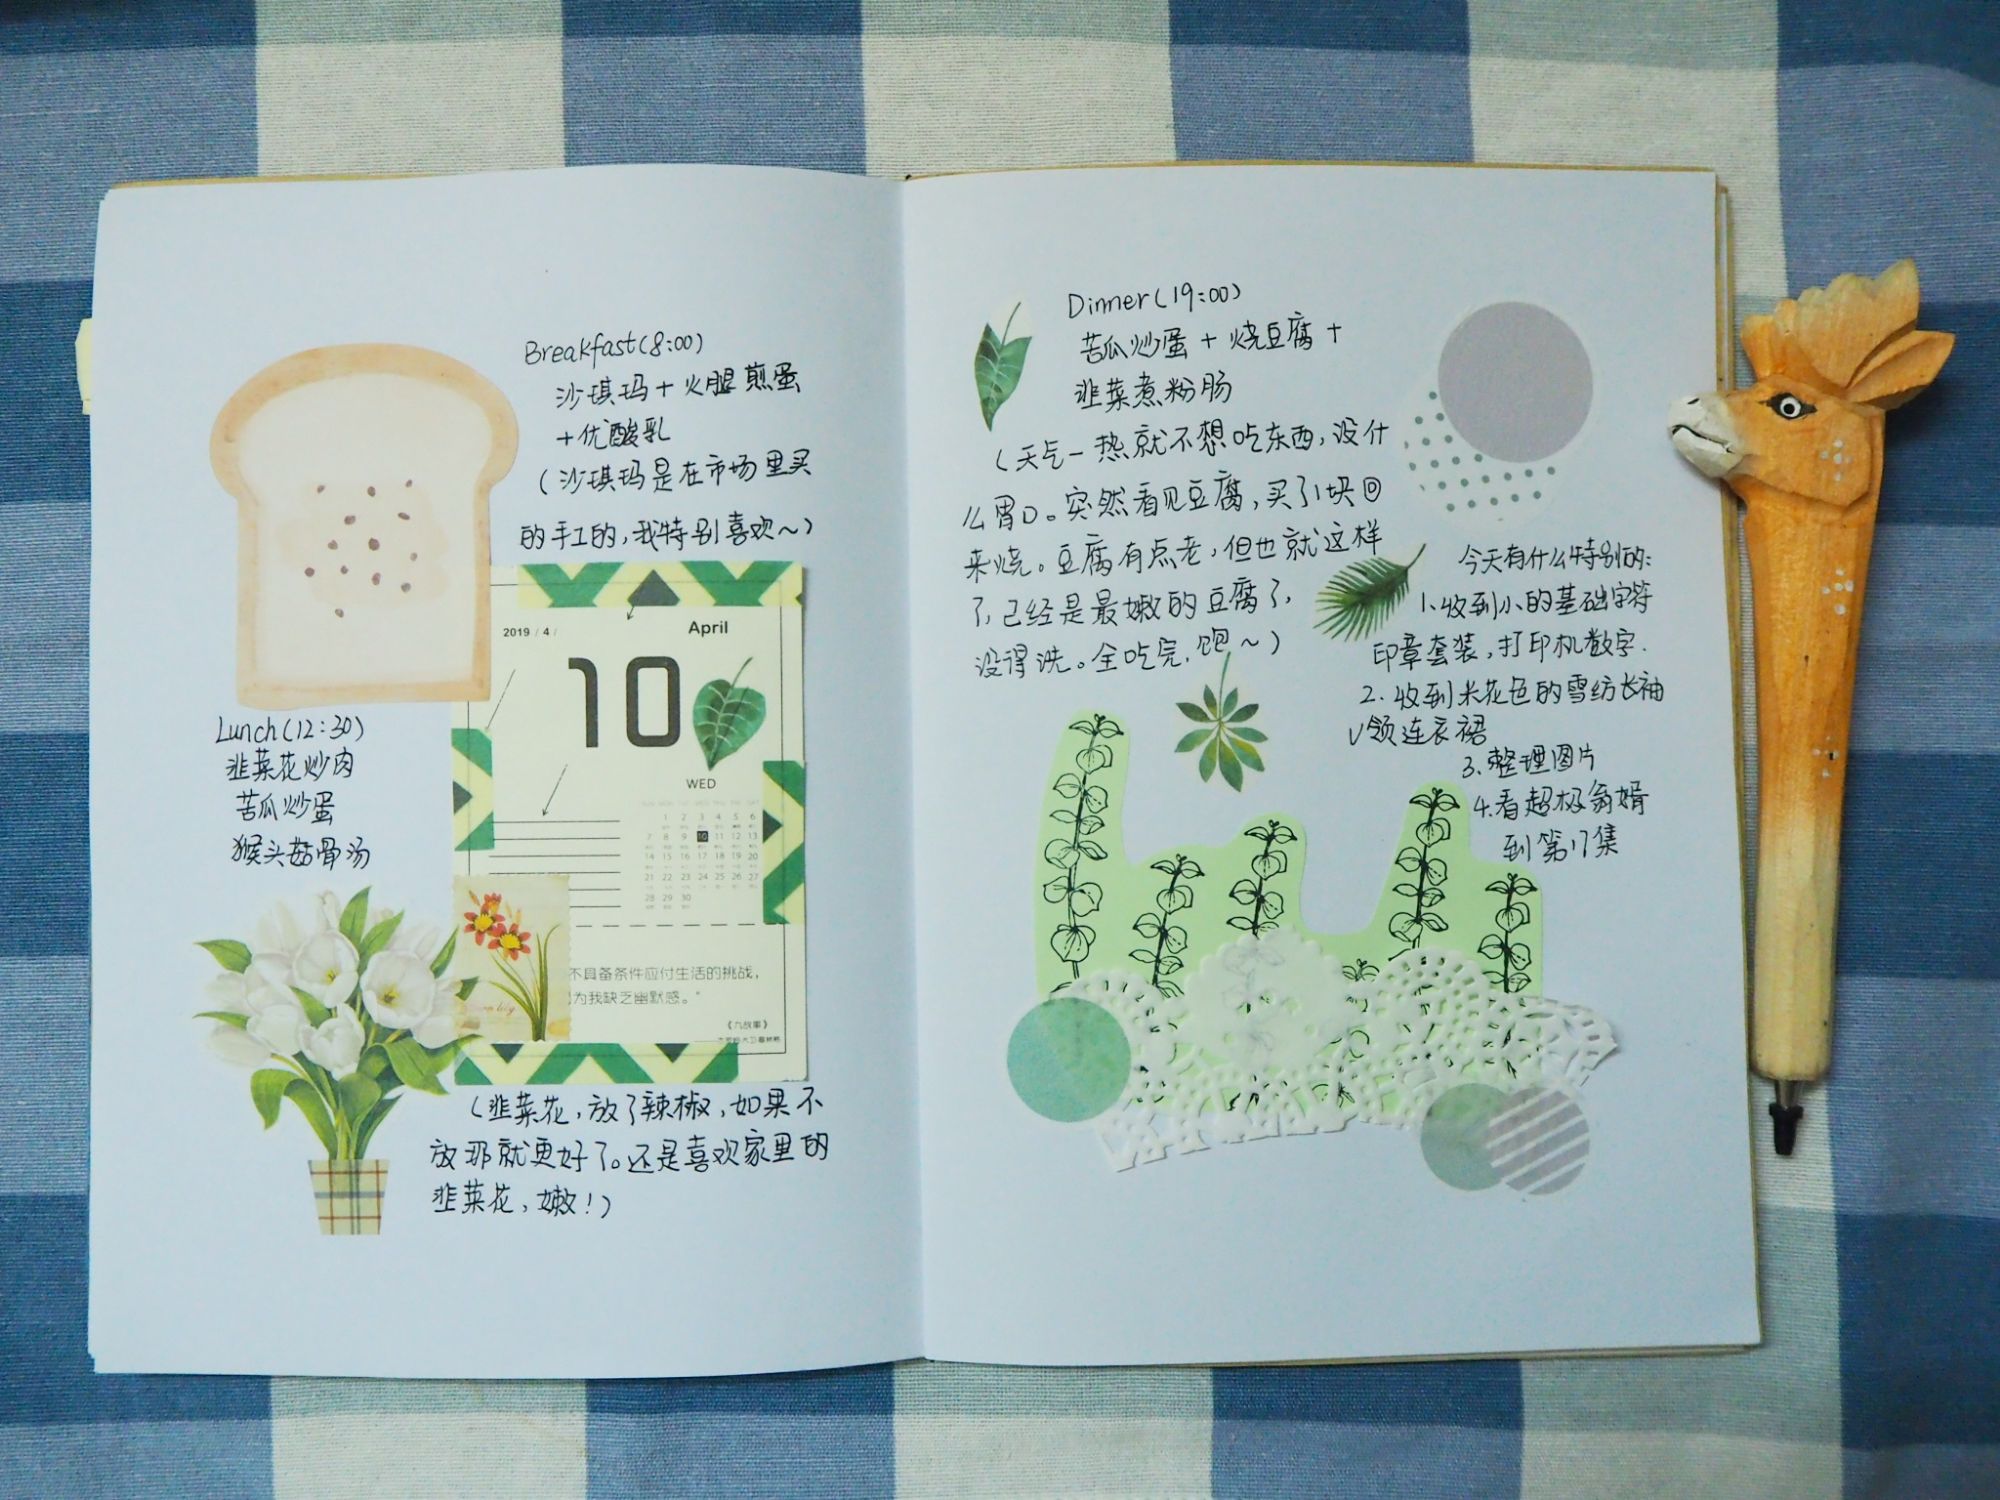 Breakfast(8:00)
沙琪玛+火腿煎蛋
+优酸乳
(沙琪玛是在市场里买
的手工的,我特别喜欢~)
2019 / 4 /
April
10
WED
SUN MON TUE WED THU FRI SAT
1 2 3 4 5 6
7 8 9 10 11 12 13
14 15 16 17 18 19 20
21 22 23 24 25 26 27
28 29 30
不具备条件应付生活的挑战,
为我缺乏幽默感。"
《九故事》
Lunch(12:30)
韭菜花炒肉
苦瓜炒蛋
猴头菇骨汤
(韭菜花,放了辣椒,如果不
放那就更好了。还是喜欢家里的
韭菜花,嫩!)
Dinner(19:00)
苦瓜炒蛋+烧豆腐+
韭菜煮粉肠
(天气一热就不想吃东西,没什
么胃口。突然看见豆腐,买了1块回
来烧。豆腐有点老,但也就这样
了,已经是最嫩的豆腐了,
没得洗。全吃完.饱~)
今天有什么特别的:
1、收到小的基础字符
印章套装,打印机数字.
2、收到米花色的雪纺长袖
V领连衣裙
3、整理图片
4、看超极翁婿
到第17集